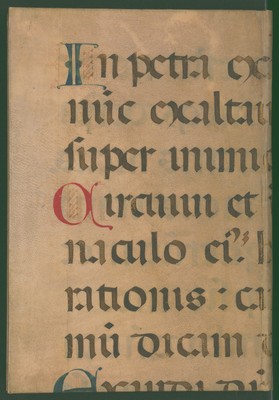 In petra ex
nūc exaltau
super inimi
Circuiui et
naculo ei⁹
rationis : ca
mū dicam
Exaudi